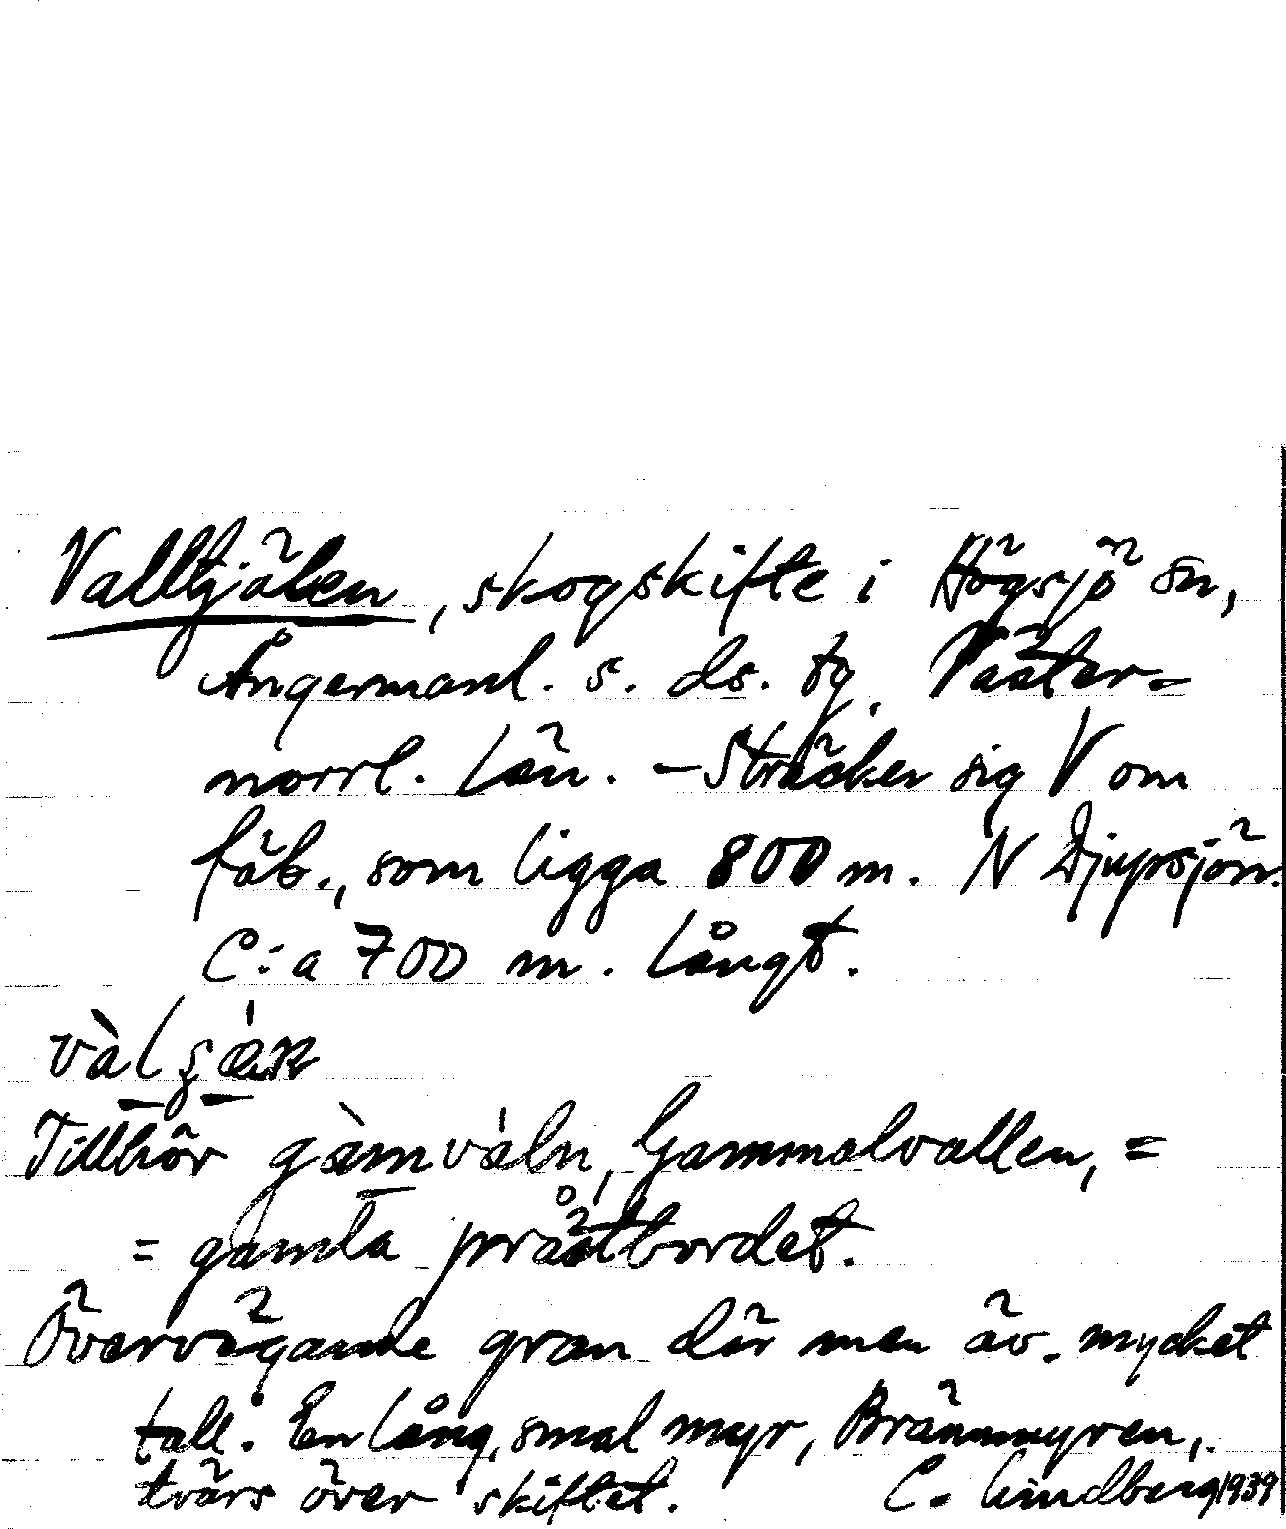 Valltjälen, skogskifte i Högsjö sn,
Ångermanl. s. ds. tg. Väster-
norrl. län. – Sträcker sig V om
fäb., som ligga 800 m. N Djupsjön.
C:a 700 m. långt.
Tillhör gàmváln, Gammalvallen, =
= gamla prästbordet.
Övervägande gran där men äv. mycket
tall. En lång, smal myr, Brännmyren,
tvärs över skiftet. C. Lindberg 1939